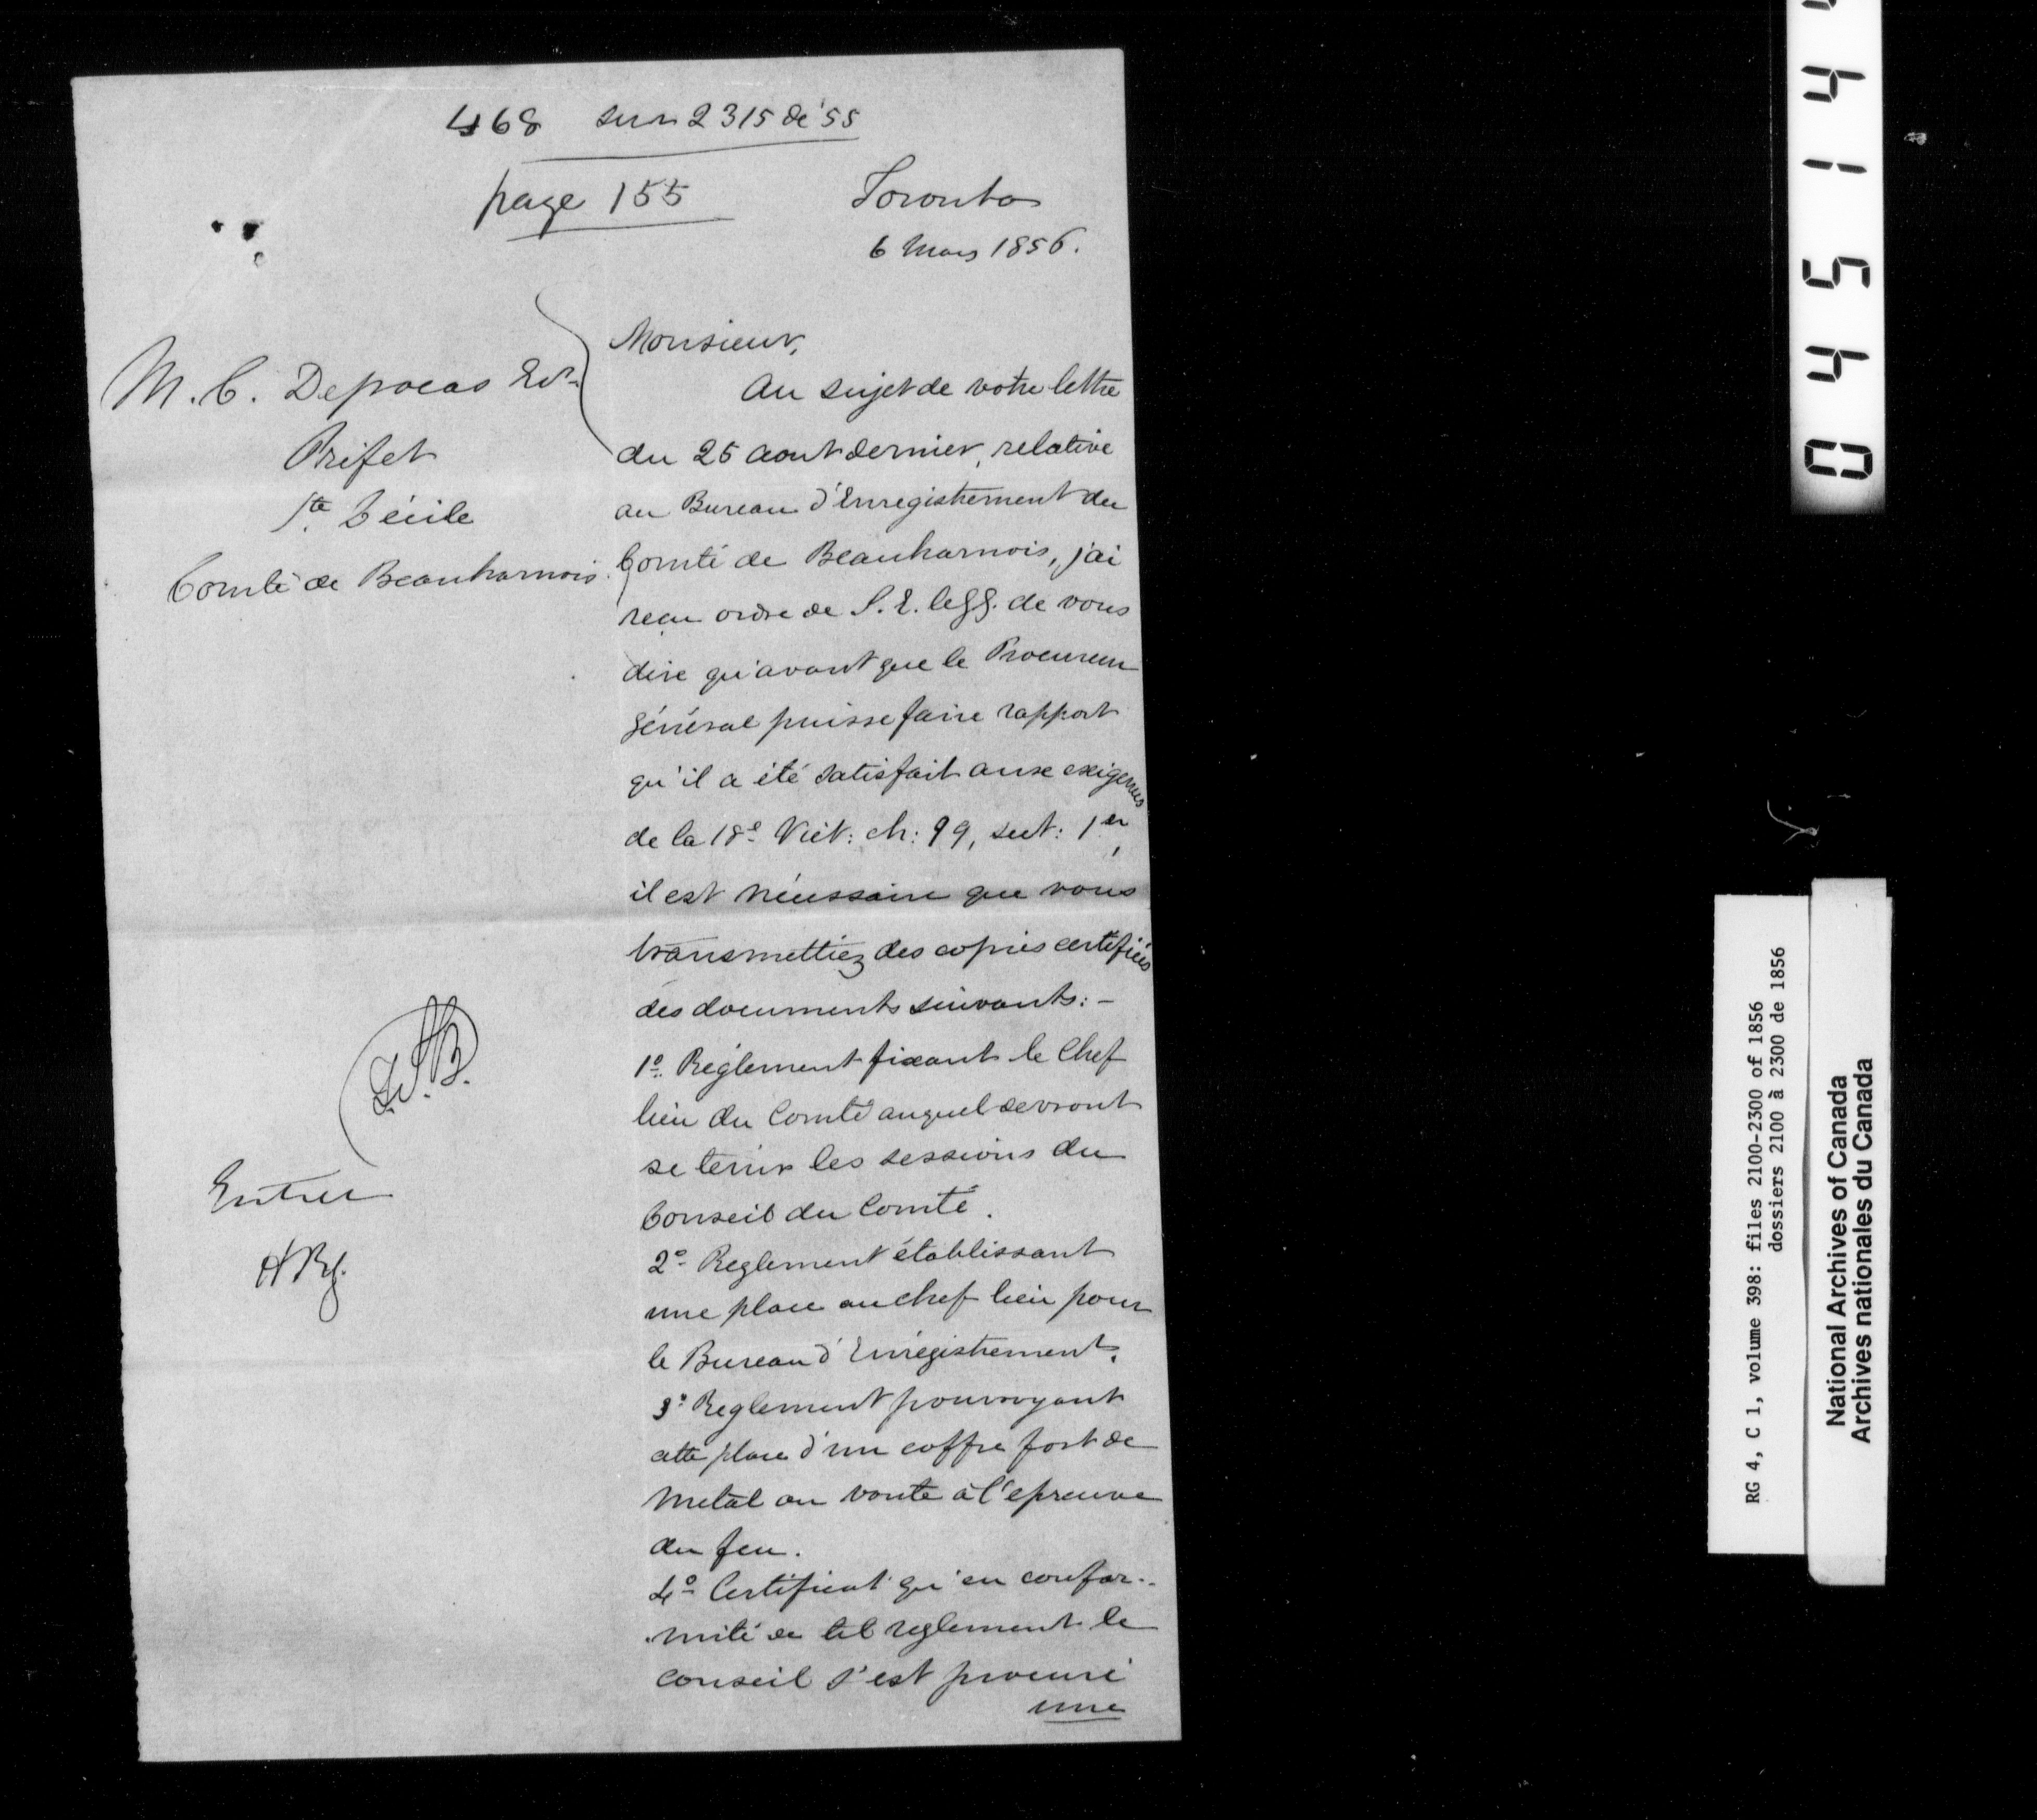 468 sur 2315 de '55
page 155
Toronto
6 Mars 1856.
M. C. Depocas Ecr.
Préfet
Ste Cécile
Comté de Beauharnois.
Monsieur,
Au sujet de votre lettre
du 25 aout dernier, relative
au Bureau d'Enregistrement du
Comté de Beauharnois, j'ai
reçu ordre de S. E. le GG. de vous
dire qu'avant que le Procureur
Général puisse faire rapport
qu'il a été satisfait aux exigences
de la 18e Vict: ch: 99, sect: 1er,
il est nécessaire que vous
transmettiez des copies certifiées
des documents suivants: -
1o. Réglement fixant le Chef
lieu du Comté auquel devront
se tenir les sessions du
Conseil du Comté.
2o Reglement établissant
une place au chef lieu pour
le Bureau d'Enregistrement.
3o Reglement pourvoyant
cette place d'un coffre fort de
metal ou voute à l'epreuve
du feu.
4o Certificat qu'en confor-
mité de tel reglement le
conseil s'est procuré
une
Entrée
HBf.
0 4 5 1 4
RG 4, C 1, volume 398: files 2100-2300 of 1856
dossiers 2100 à 2300 de 1856
National Archives of Canada
Archives nationales du Canada